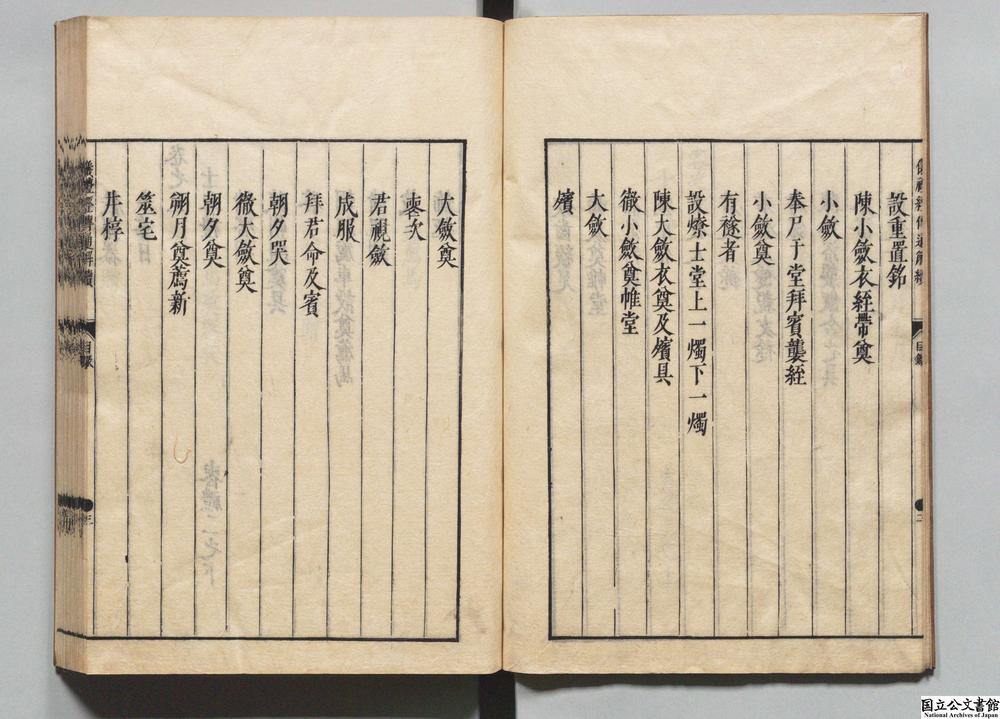 設重置銘
陳小斂衣絰帶奠
小斂
奉尸于堂拜賓襲絰
小斂奠
有襚者
設燎士堂上一燭下一燭
陳大斂衣奠及殯具
徹小斂奠帷堂
大斂
殯
儀禮經傳通解續
目錄
二
大斂奠
喪次
君視斂
成服
拜君命及賓
朝夕哭
徹大斂奠
朝夕奠
朔月奠薦新
筮宅
井椁
儀禮經傳通解續
目錄
三
国立公文書館
National Archives of Japan